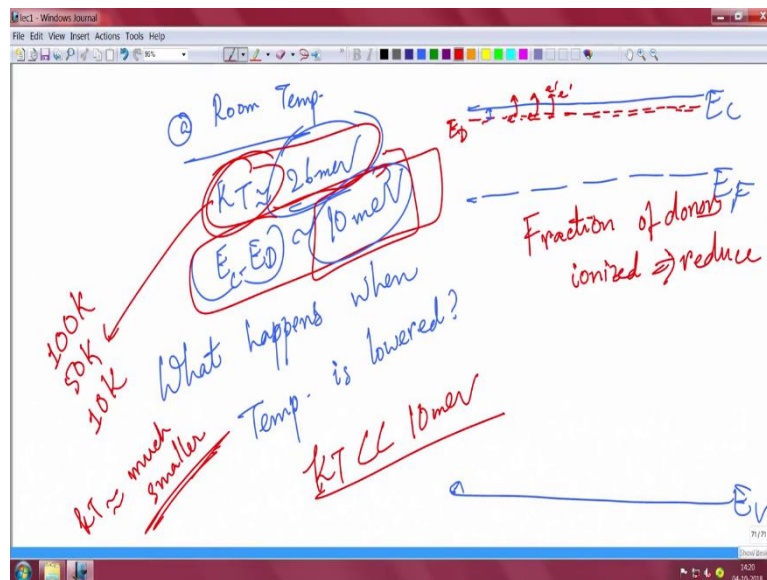 lec1 - Windows Journal
File Edit View Insert Actions Tools Help
96%
B I
@ Room Temp.
KT ≈ 26 meV
E_C-E_D ~ 10 meV
What happens when
Temp. is lowered?
100K
50K
10K
KT ≈ much
smaller
KT << 10 meV
E_D
e' e'
E_C
E_F
Fraction of donors
ionized ⇒ reduce
E_V
71/71
14:20
04-10-2018